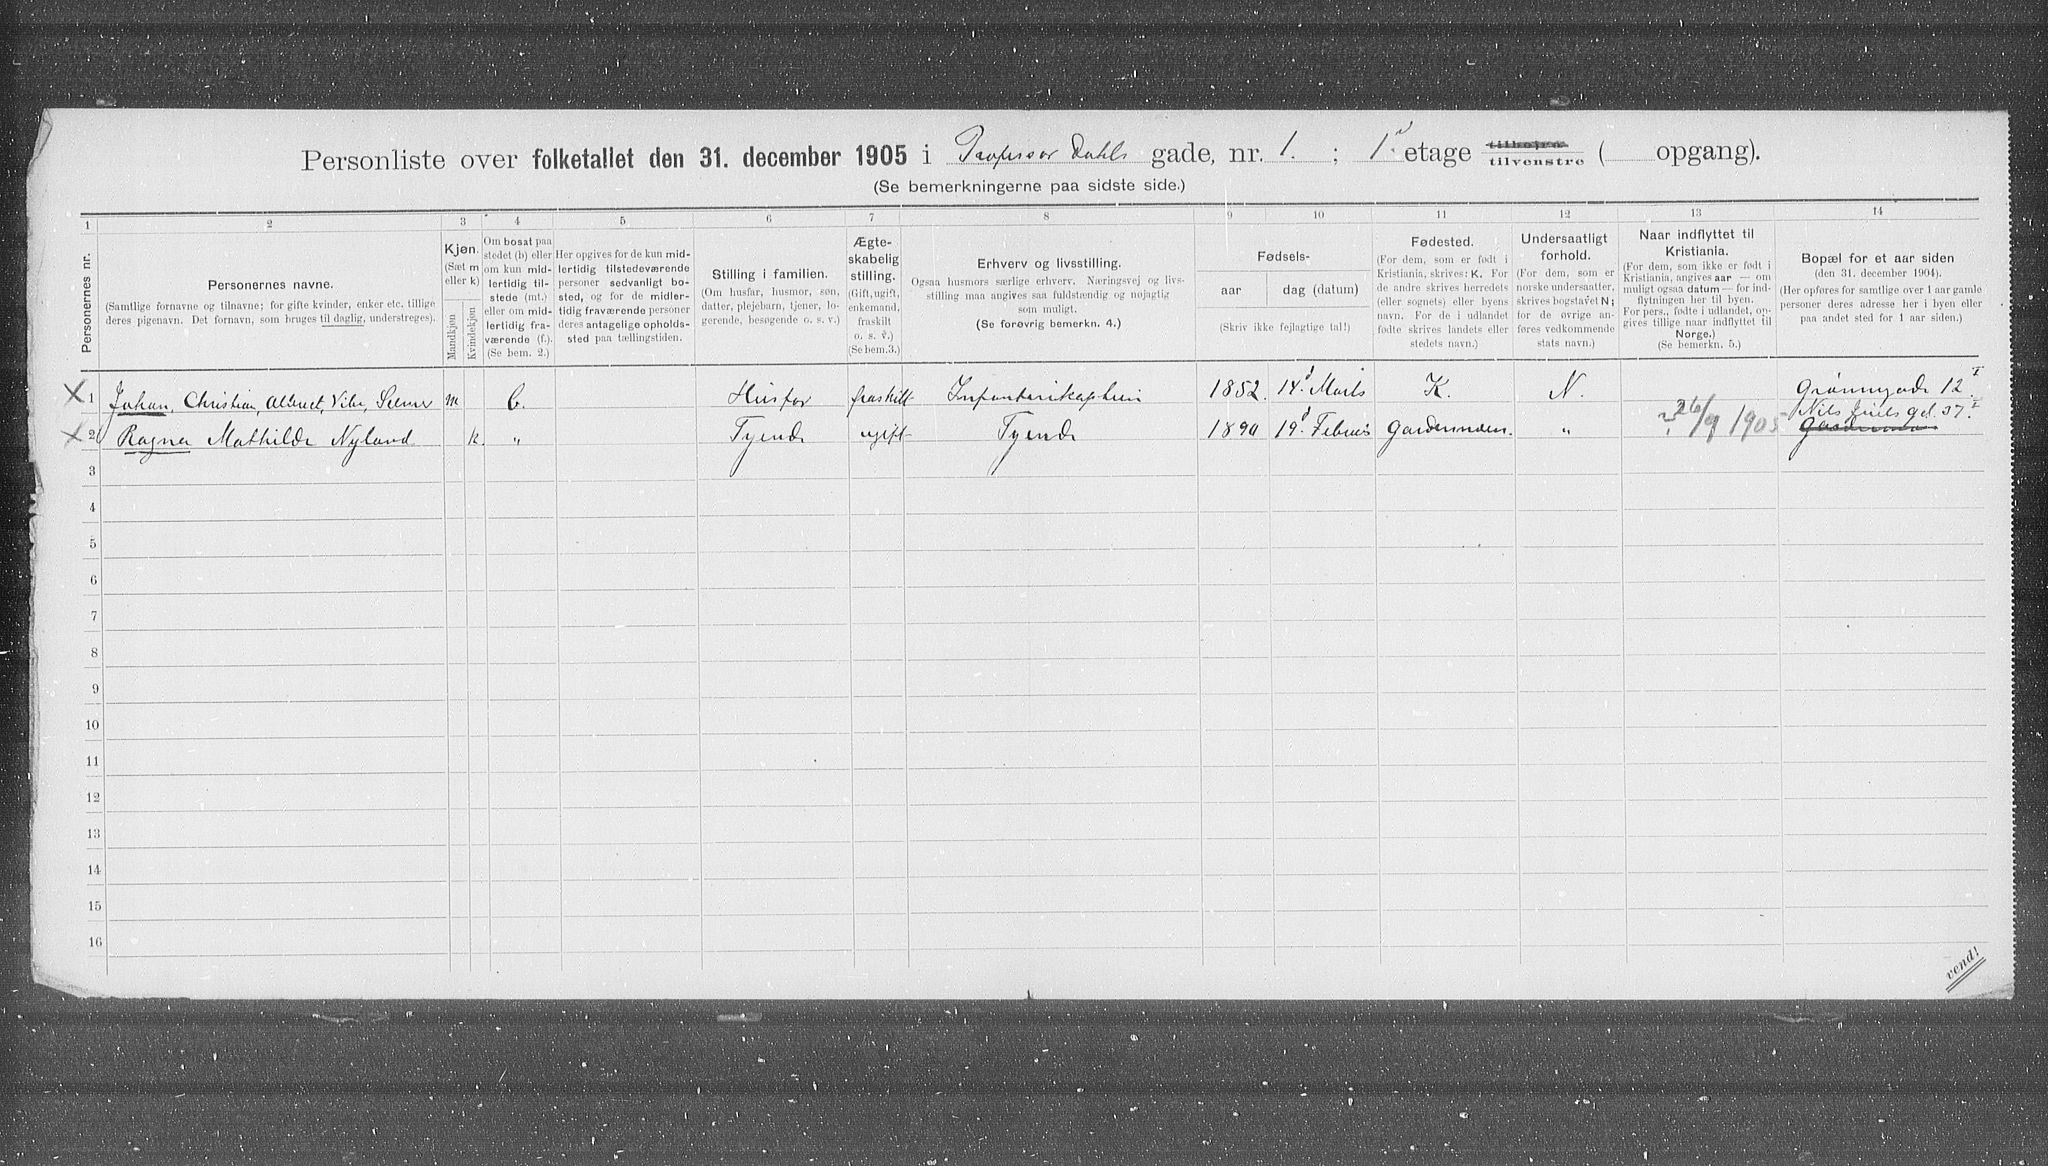 Personliste over folketallet den 31. december 1905 i Professor Dahls gade, nr. 1. ; 1. etage tilhøire tilvenstre ( opgang).
(Se bemerkningerne paa sidste side.)
1 2 3 4 5 6 7 8 9 10 11 12 13 14
Personernes nr.
Personernes navne.
(Samtlige fornavne og tilnavne; for gifte kvinder, enker etc. tillige
deres pigenavn. Det fornavn, som bruges til daglig, understreges).
Kjøn.
(Sæt m
eller k)
Mandkjøn
Kvindekjøn
Om bosat paa
stedet (b) eller
om kun mid-
lertidig til-
stede (mt.)
eller om mid-
lertidig fra-
værende (f.).
(Se bem. 2.)
Her opgives for de kun mid-
lertidig tilstedeværende
personer sedvanligt bo-
sted, og for de midler-
tidig fraværende personer
deres antagelige opholds-
sted paa tællingstiden.
Stilling i familien.
(Om husfar, husmor, søn,
datter, plejebarn, tjener, lo-
gerende, besøgende o. s. v.)
Ægte-
skabelig
stilling.
(Gift, ugift,
enkemand,
fraskilt
o. s. v.)
(Se bem. 3.)
Erhverv og livsstilling.
Ogsaa husmors særlige erhverv. Næringsvej og livs-
stilling maa angives saa fuldstændig og nøjagtig
som muligt.
(Se forøvrig bemerkn. 4.)
Fødsels-
aar
dag (datum)
(Skriv ikke fejlagtige tal!)
Fødested.
(For dem, som er født i
Kristiania, skrives: K. For
de andre skrives herredets
(eller sognets) eller byens
navn. For de i udlandet
fødte skrives landets eller
stedets navn.)
Undersaatligt
forhold.
(For dem, som er
norske undersaatter,
skrives bogstavet N;
for de øvrige an-
føres vedkommende
stats navn.)
Naar indflyttet til
Kristiania.
(For dem, som ikke er født i
Kristiania, angives aar — om
muligt ogsaa datum — for ind-
flytningen her til byen.
For pers., fødte i udlandet, op-
gives tillige naar indflyttet til
Norge.)
(Se bemerkn. 5.)
Bopæl for et aar siden
(den 31. december 1904).
(Her opføres for samtlige over 1 aar gamle
personer deres adresse her i byen eller
paa andet sted for 1 aar siden.)
X 1 Johan, Christian, Albrect, Vibe, Selmer m b. Husfar fraskilt Infanterikaptein 1852. 14d Marts K. N. Grønnegade 12 I
X 2 Ragna Mathilde Nyland k. " Tyende ugift Tyende 1890 19d Februar Gardermoen. " 26/9 1905 Nils Juels gd. 37. I
Gardermoen
3
4
5
6
7
8
9
10
11
12
13
14
15
16
vend!